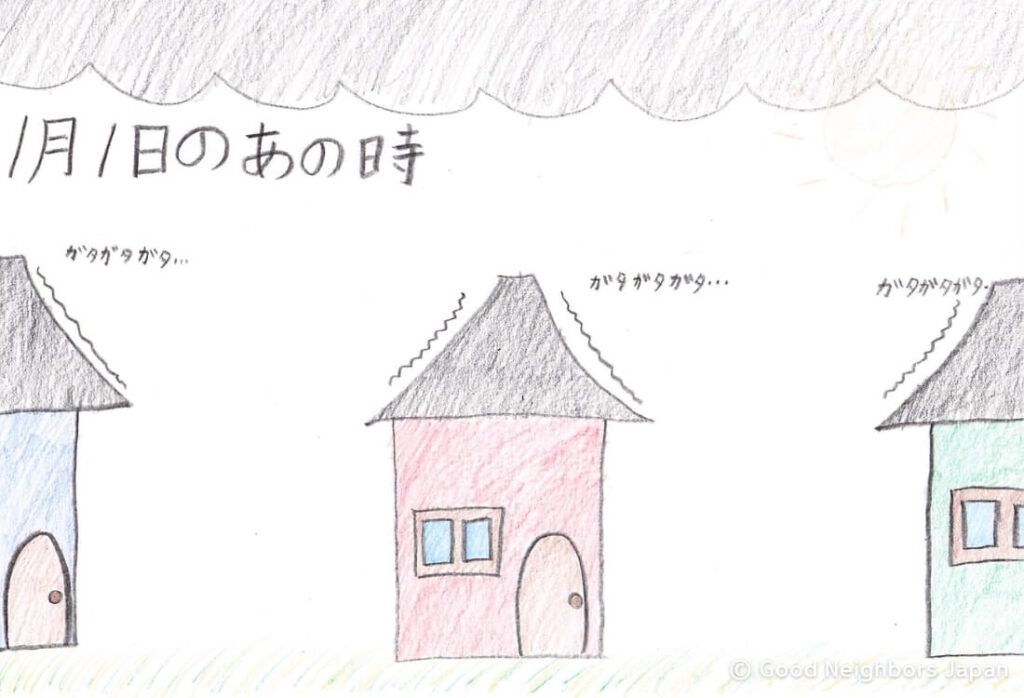 1月1日のあの時
ガタガタガタ...
ガタガタガタ...
ガタガタガタ.
© Good Neighbors Japan